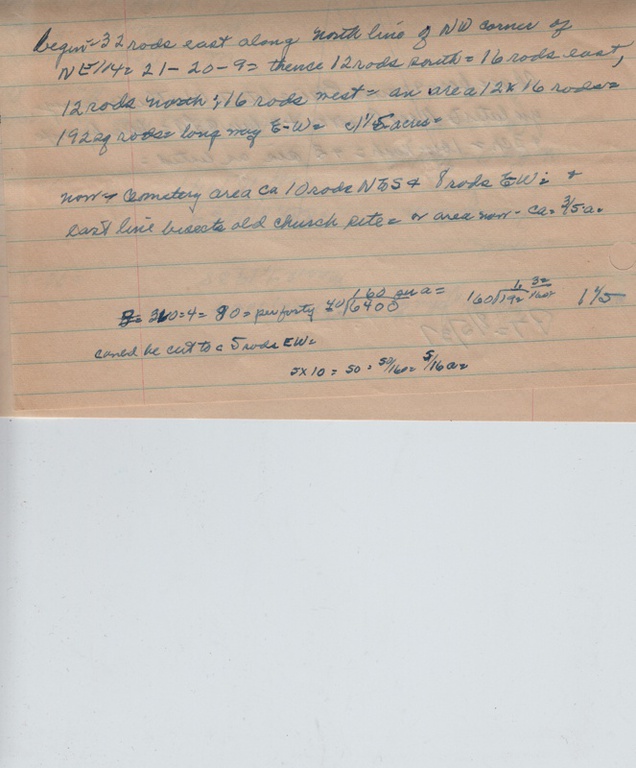 begin - 32 rods east along north line of NW corner of
NE 1/4 = 21 - 20 - 9 = thence 12 rods south = 16 rods east,
12 rods north; 16 rods west = an area 12 x 16 rods =
192 sq rods = long way E-W = 1 1/5 acres =
now → Cemetery area ca 10 rods N & S & 8 rods E W; &
east line bisects old church site = or area now - ca. 3/5 a.
320 ÷ 4 = 80 = per forty 40)6400 160 per a = 160)192 1 32/160 1 1/5
could be cut to c 5 rods EW =
5 x 10 = 50 = 50/160 = 5/16 a =